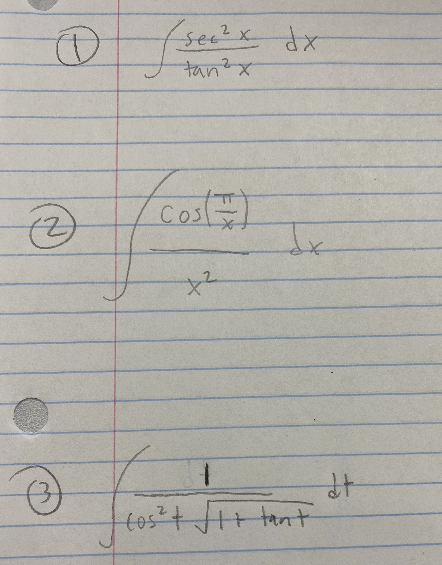 ① ∫ sec² x / tan² x dx
② ∫ cos(π/x) / x² dx
③ ∫ 1 / cos² t √(1 + tan t) dt